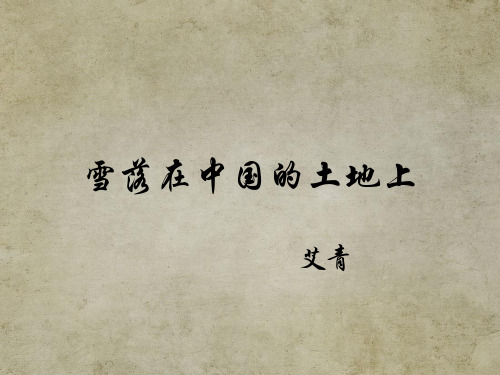 雪落在中国的土地上
艾青